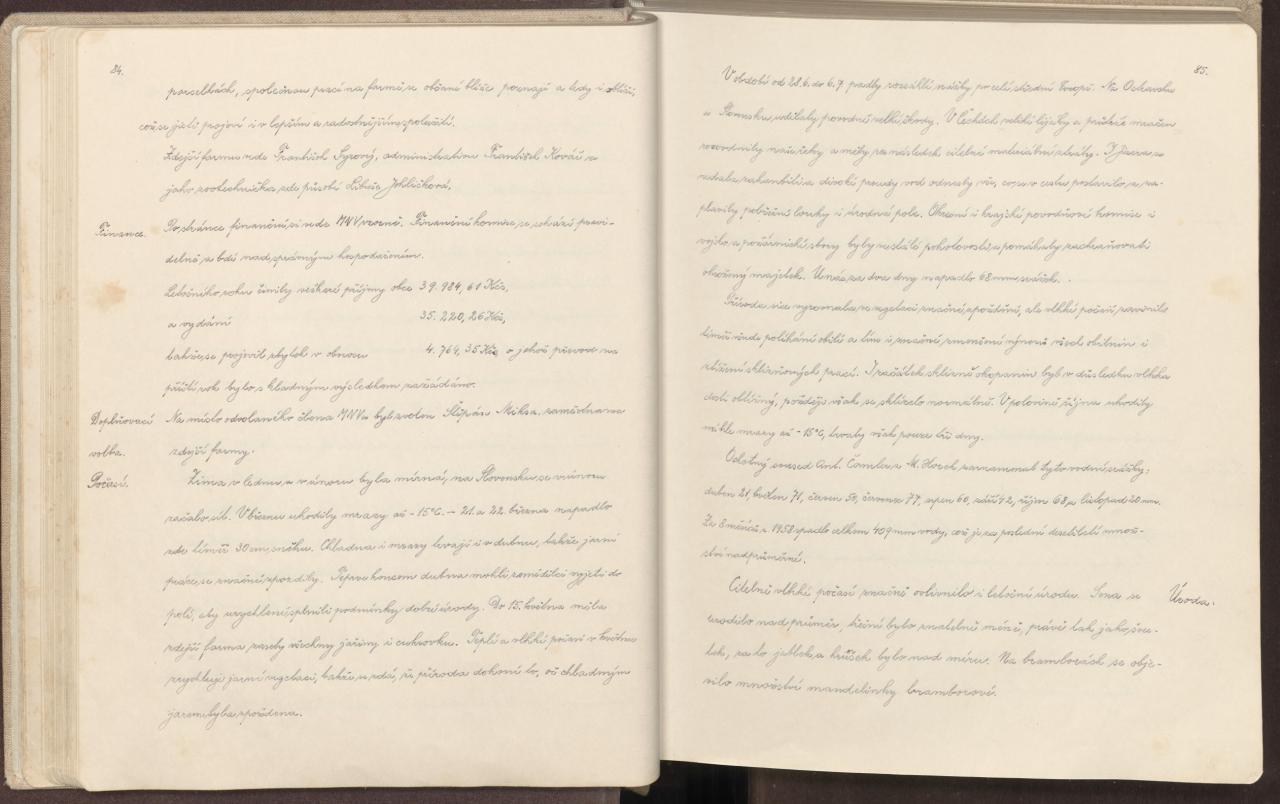 84.
parcelkách, společnou prací na farmě se občané blíže poznají a tedy i sblíží,
což se jistě projeví i v lepším a radostnějším spolužití.
Zdejší farmu vede František Syrový, administrativu František Kovář a
jako zootechnička zde působí Libuše Jehličková.
Finance.
Po stránce finanční si vede MNV vzorně. Finanční komise se schází pravi-
delně a bdí nad správným hospodařením.
Letošního roku činily veškeré příjmy obce 39.984,61 Kčs,
a vydání 35.220,26 Kčs,
takže se projevil zbytek v obnose 4.764,35 Kčs o jehož převod na
příští rok bylo s kladným výsledkem zažádáno.
Doplňovací
volba.
Na místo odvolaného člena MNV byl zvolen Štěpán Miksa, zaměstnanec
zdejší farmy.
Počasí.
Zima v lednu a v únoru byla mírná, na Slovensku se v únoru
začalo sít. V březnu uhodily mrazy až -15°C. - 21. a 22. března napadlo
zde téměř 30 cm sněhu. Chladna i mrazy trvají i v dubnu, takže jarní
práce se značně zpozdily. Teprve koncem dubna mohli zemědělci vyjeti do
polí, aby urychleně splnili podmínky dobré úrody. Do 15. května měla
zdejší farma zasety všechny jařiny i cukrovku. Teplé a vlhké počasí v květnu
zrychluje jarní vegetaci, takže se zdá, že příroda dohoní to, oč chladným
jarem byla zpožděna.
85.
V období od 28.6. do 6.7. padly rozsáhlé srážky po celé střední Evropě. Na Ostravsku
a Slovensku udělaly povodně velké škody. V Čechách veliké lijáky a průtrže mračen
rozvodnily naše řeky a měly za následek citelné materiální ztráty. I Jizera se
zdála zahanbiti a divoké proudy vod odnesly vše, co se v cestu postavilo a za-
plavily pobřežní louky i úrodná pole. Okresní i krajské povodňové komise i
vojsko a požárnické sbory byly ve stálé pohotovosti a pomáhaly zachraňovati
ohrožený majetek. U nás za dva dny napadlo 68 mm srážek.
Příroda sice vyrovnala ve vegetaci značné zpoždění, ale vlhké počasí zavinilo
téměř všude poléhání obilí a tím i značné zmenšení výnosů všech obilnin i
ztížení sklizňových prací. I začátek sklizně okopanin byl v důsledku vlhka
dosti obtížný, později však se sklízelo normálně. V polovině října uhodily
náhle mrazy až -15°C, trvaly však pouze tři dny.
Ochotný soused Ant. Čomla z M. Horek zaznamenal tyto vodní srážky:
duben 21, květen 71, červen 50, červenec 77, srpen 60, září 42, říjen 68, a listopad 20 mm.
Za 8 měsíců r. 1958 spadlo celkem 409 mm vody, což je za poslední desetiletí množ-
ství nadprůměrné.
Úroda.
Citelně vlhké počasí značně ovlivnilo i letošní úrodu. Sena se
urodilo nad průměr, třešní bylo znatelně méně, právě tak jako šves-
tek, za to jablek a hrušek bylo nad míru. Na bramborách se obje-
vilo množství mandelinky bramborové.